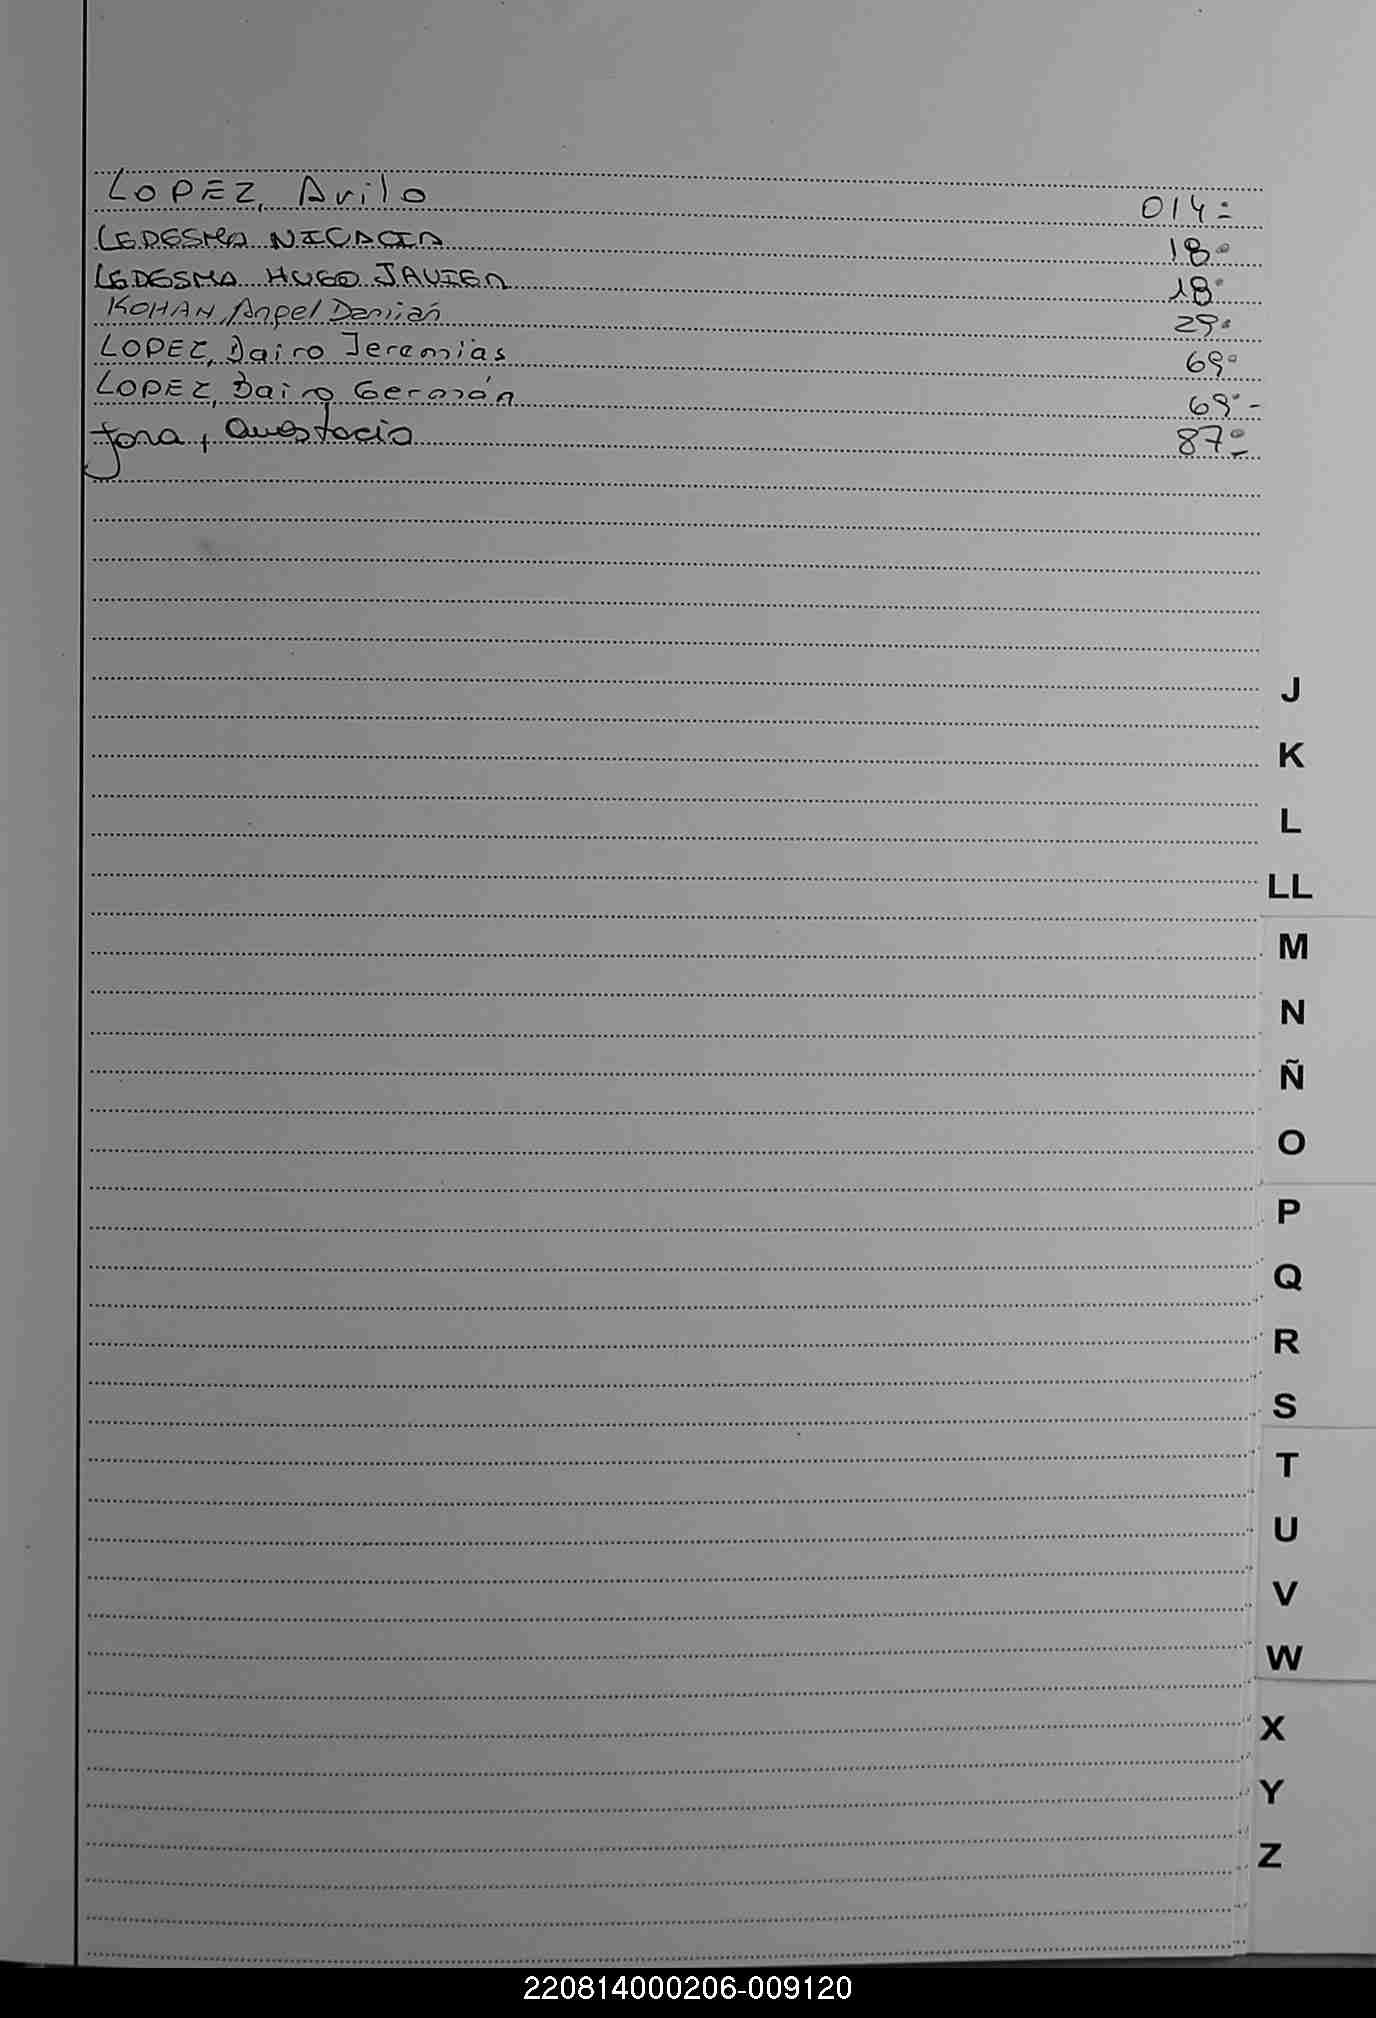 LOPEZ, Avilo 014=
LEDESMA NICACIA 18º
LEDESMA HUGO JAVIER 18º
KOHAN, Angel Damián 29º
LOPEZ, Dairo Jeremías 69º
LOPEZ, Bairo Germán 69º-
Jara, Anastacio 87º-
J
K
L
LL
M
N
Ñ
O
P
Q
R
S
T
U
V
W
X
Y
Z
220814000206-009120